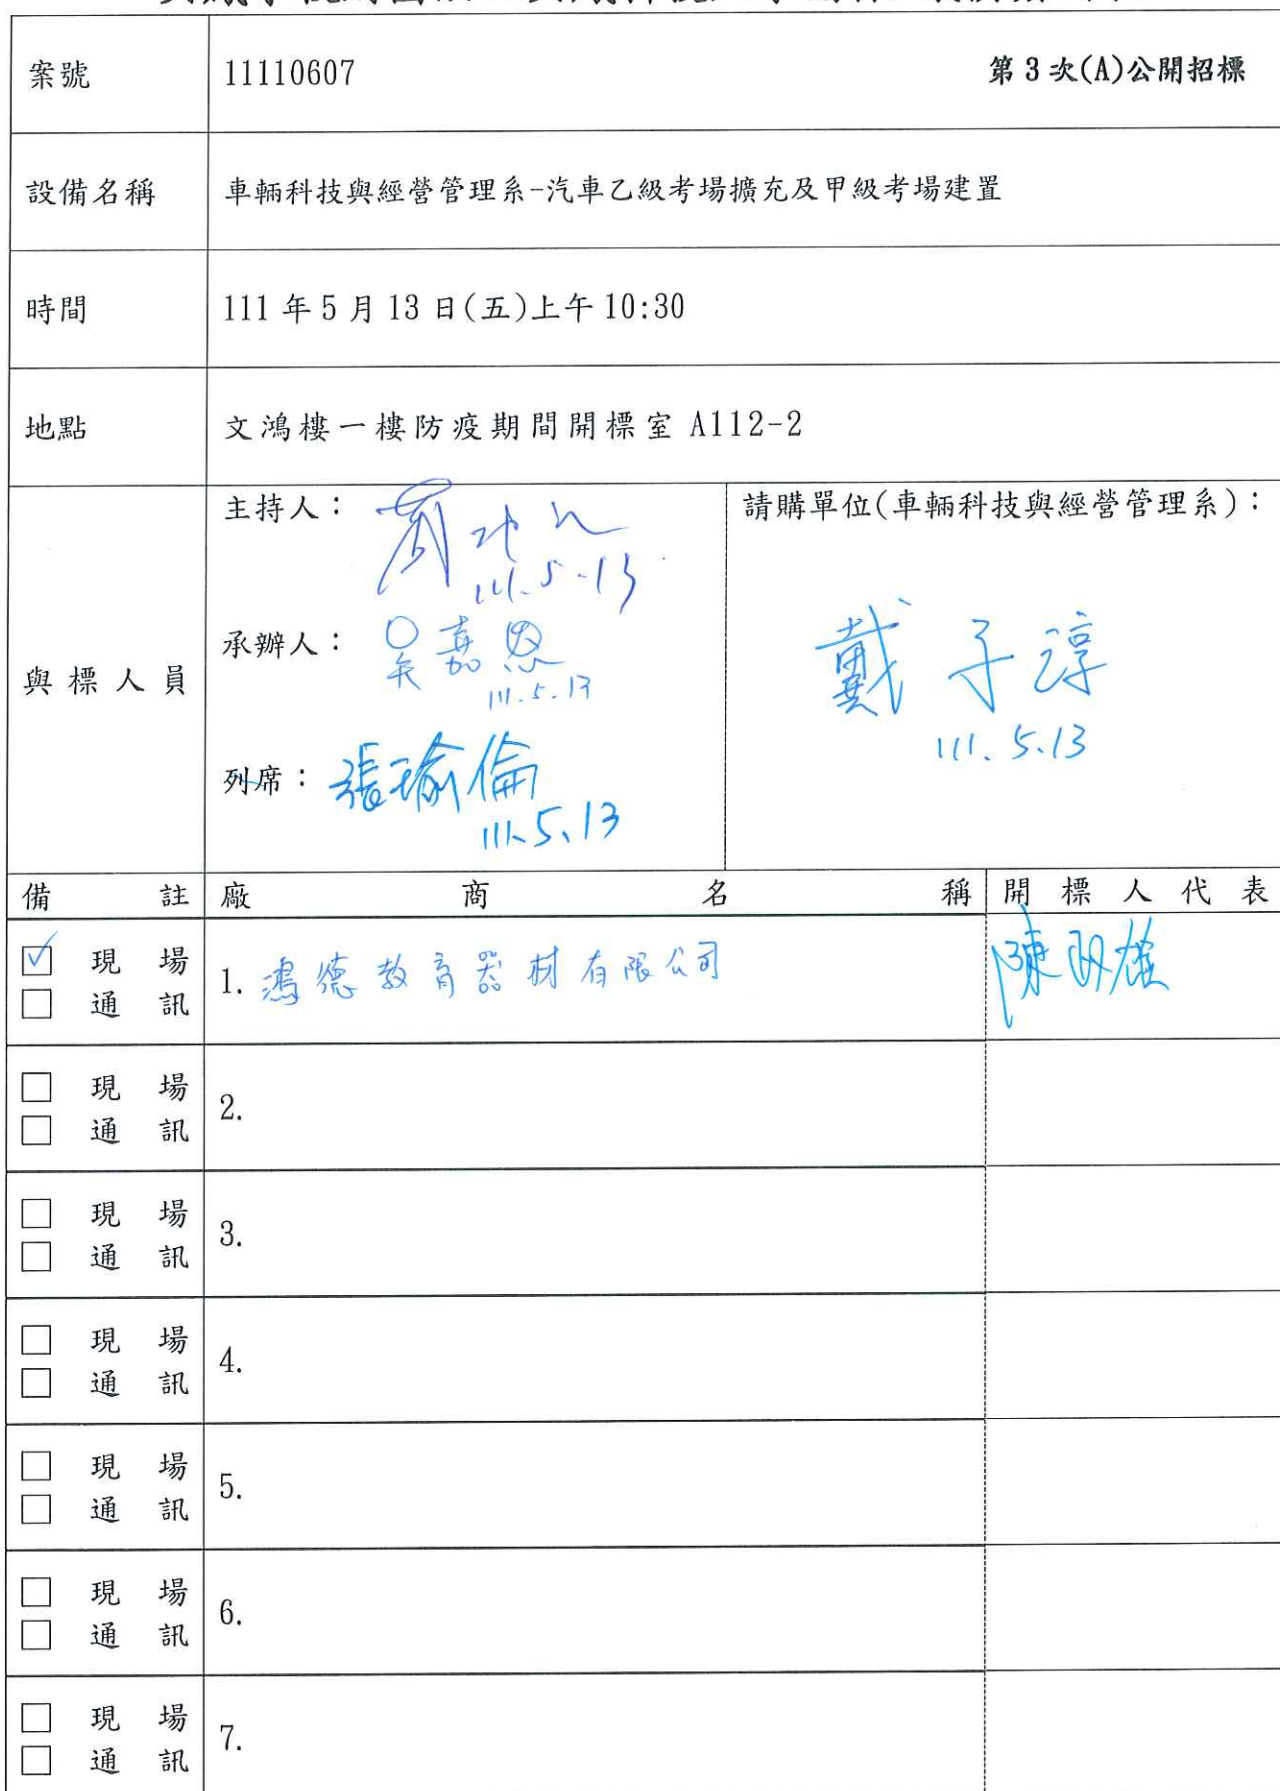 案號 11110607 第3次(A)公開招標
設備名稱 車輛科技與經營管理系-汽車乙級考場擴充及甲級考場建置
時間 111年5月13日(五)上午10:30
地點 文鴻樓一樓防疫期間開標室 A112-2
與標人員
主持人：
111.5.13
承辦人：吳嘉恩
111.5.13
列席：張瑜倫
111.5.13
請購單位(車輛科技與經營管理系)：
戴子淳
111.5.13
備註 廠商名稱 開標人代表
☑ 現場
□ 通訊
1. 鴻德教育器材有限公司
陳
□ 現場
□ 通訊
2.
□ 現場
□ 通訊
3.
□ 現場
□ 通訊
4.
□ 現場
□ 通訊
5.
□ 現場
□ 通訊
6.
□ 現場
□ 通訊
7.